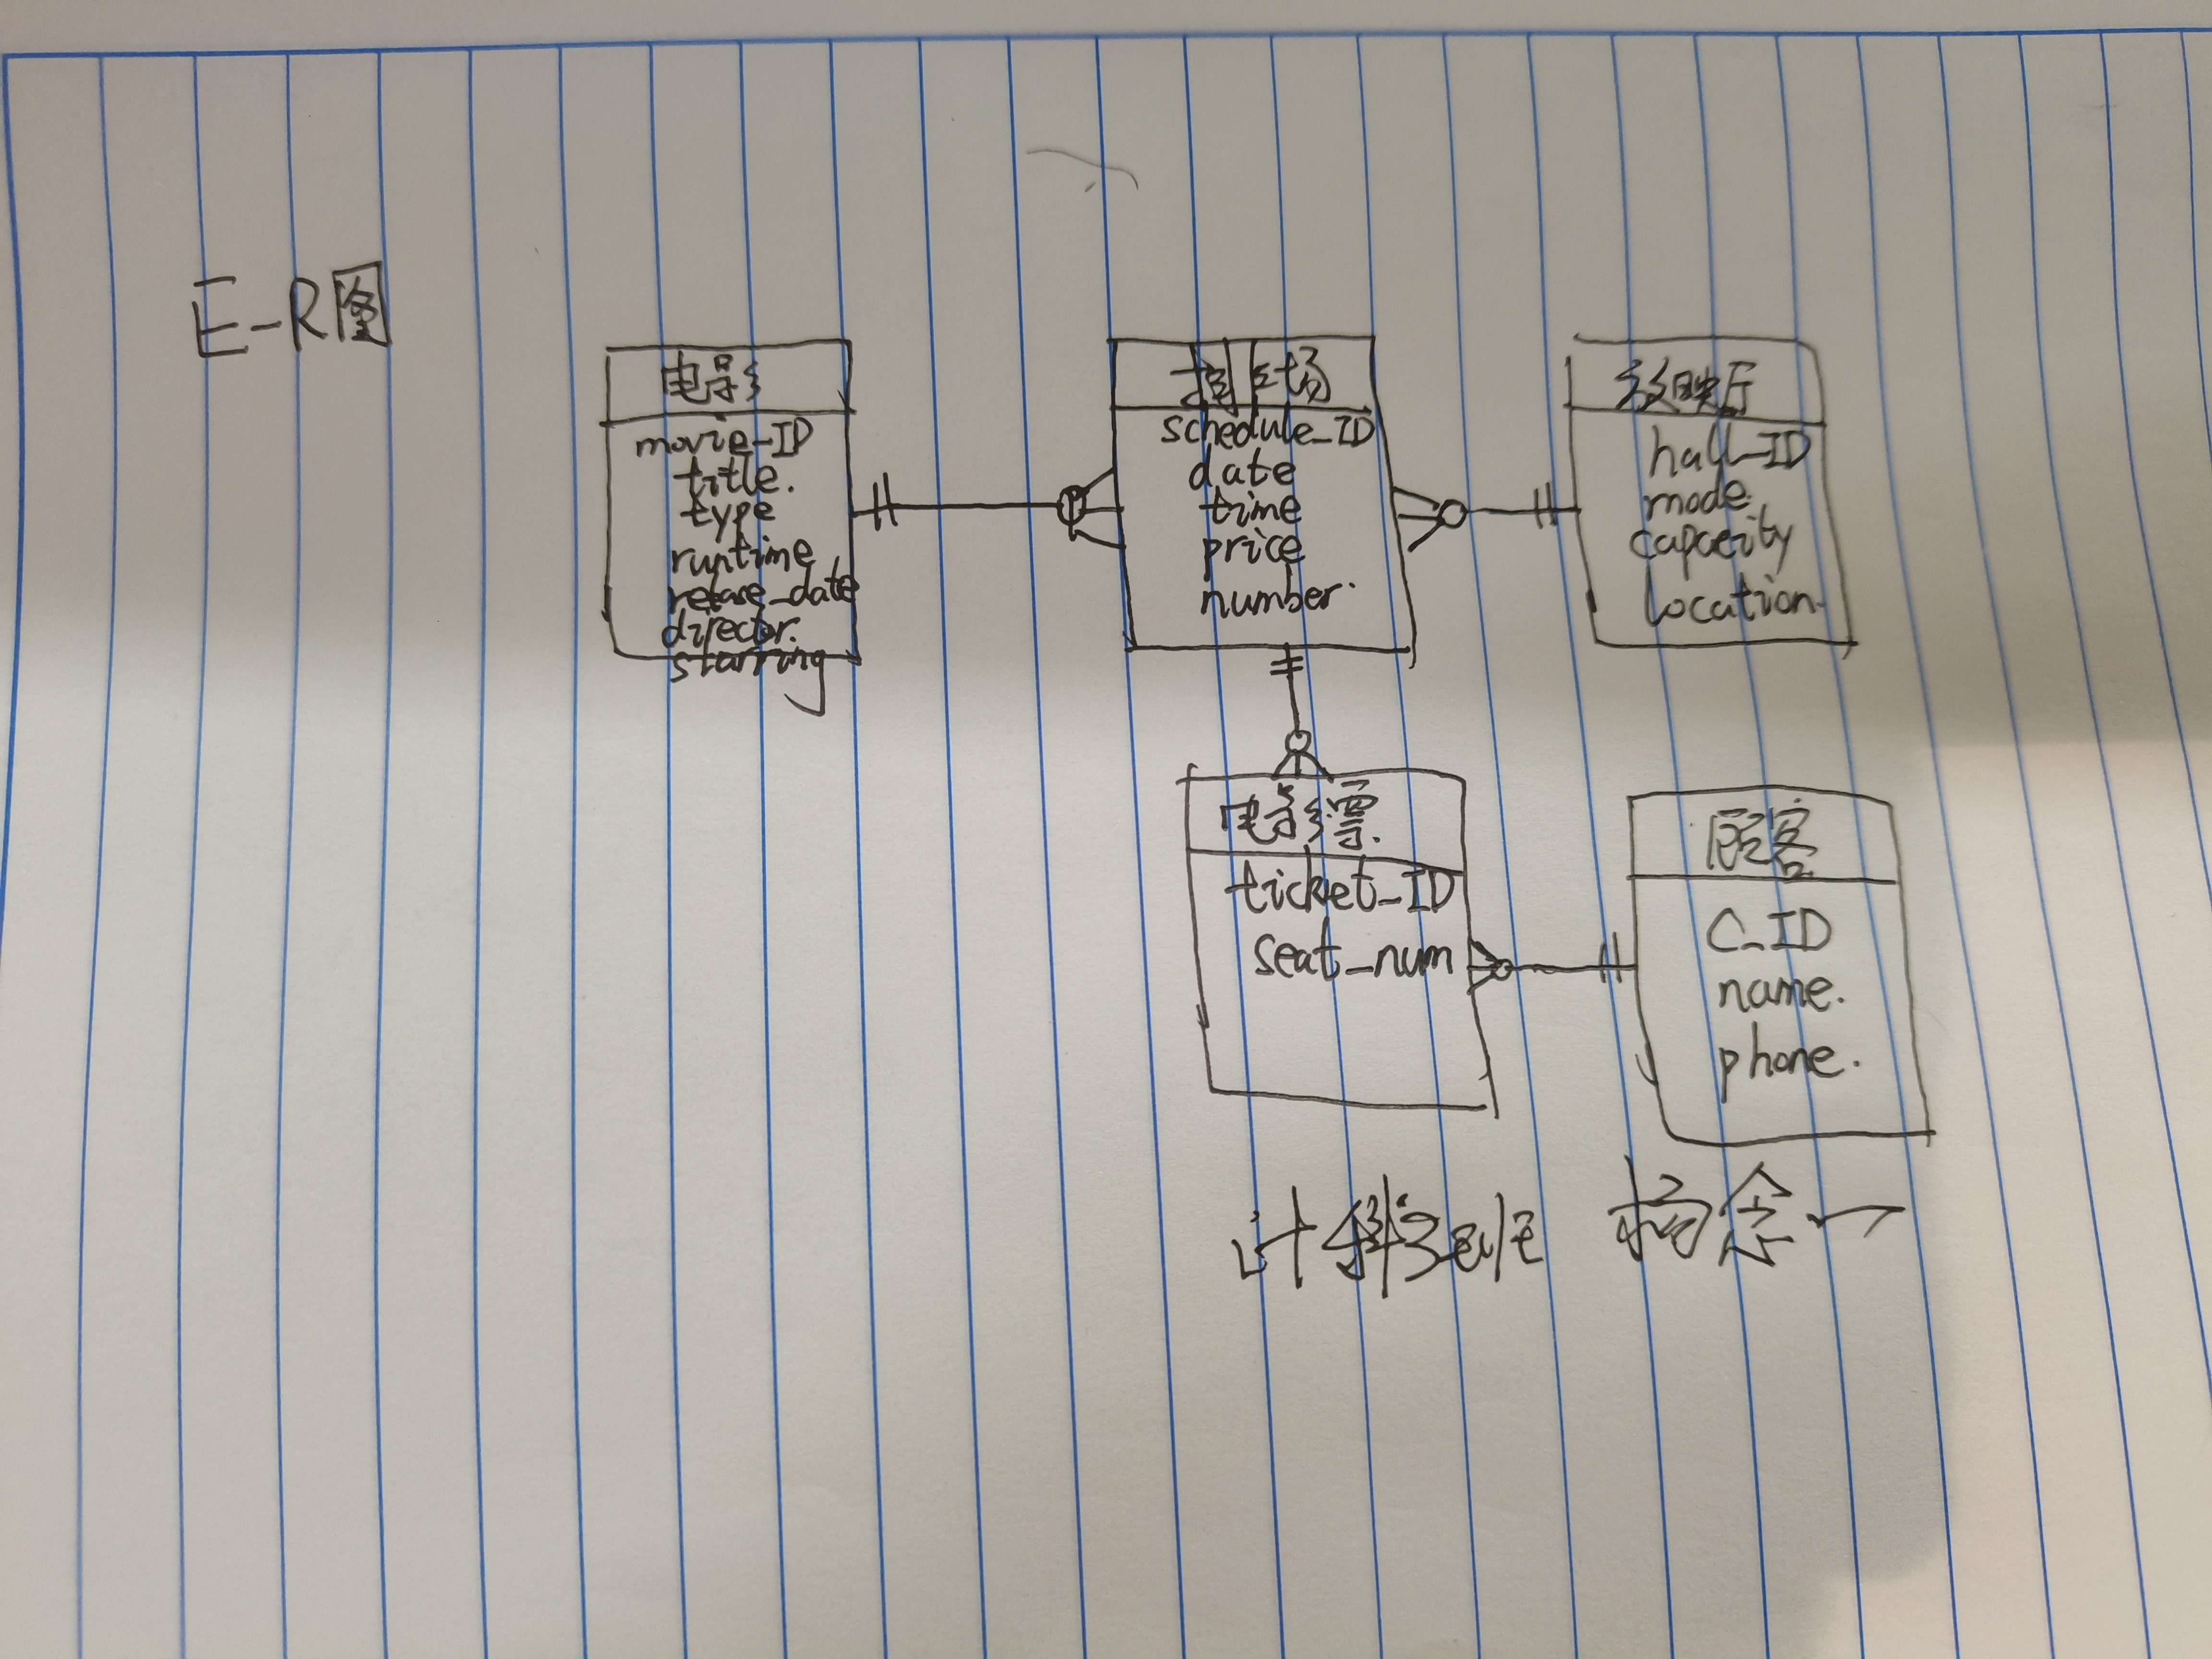 E-R图
电影
movie_ID
title.
type
runtime
relase_date
director.
starring
schedule_ID
date
time
price
number.
放映厅
hall_ID
mode.
capacity
location.
电影票.
ticket_ID
seat_num
顾客
C_ID
name.
phone.